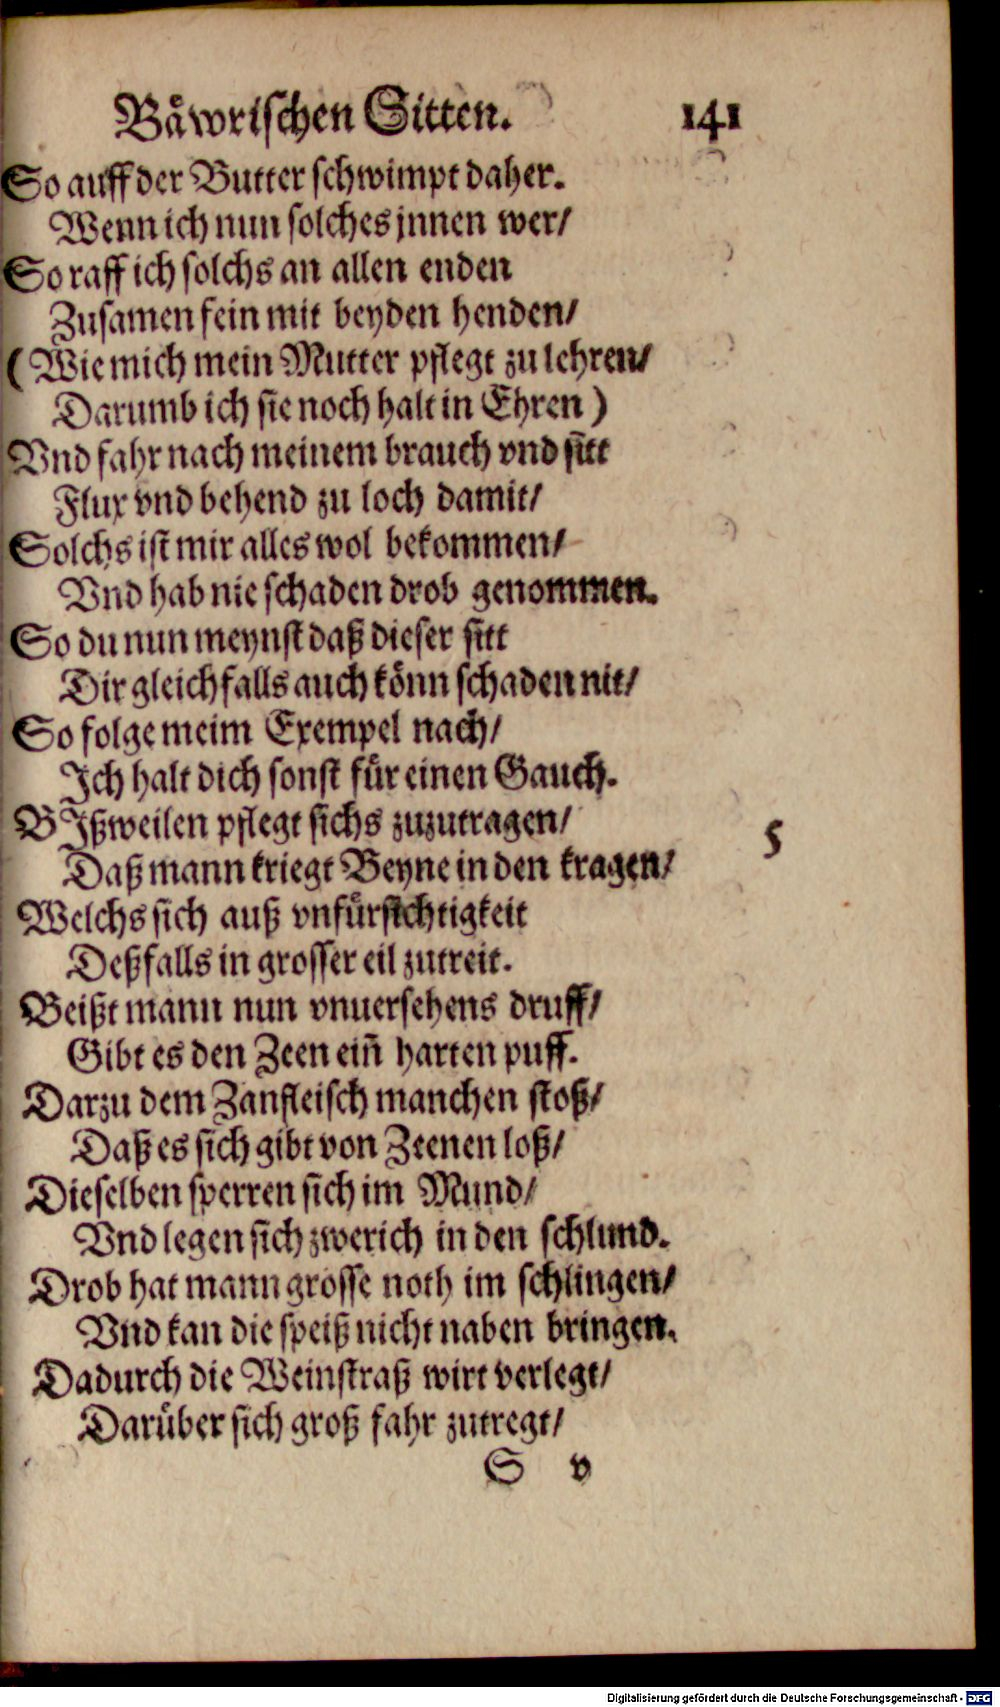 Båwrischen Sitten. 141
So auff der Butter schwimpt daher.
Wenn ich nun solches jnnen wer/
So raff ich solchs an allen enden
Zusamen fein mit beyden henden/
(Wie mich mein Mutter pflegt zu lehren/
Darumb ich sie noch halt in Ehren)
Vnd fahr nach meinem brauch vnd sitt
Flux vnd behend zu loch damit/
Solchs ist mir alles wol bekommen/
Vnd hab nie schaden drob genommen.
So du nun meynst daß dieser sitt
Dir gleichfalls auch könn schaden nit/
So folge meim Exempel nach/
Ich halt dich sonst für einen Gauch.
BIßweilen pflegt sichs zuzutragen/ 5
Daß mann kriegt Beyne in den kragen/
Welchs sich auß vnfürsichtigkeit
Deßfalls in grosser eil zutreit.
Beißt mann nun vnuersehens druff/
Gibt es den Zeen ein̄ harten puff.
Darzu dem Zanfleisch manchen stoß/
Daß es sich gibt von Zeenen loß/
Dieselben sperren sich im Mund/
Vnd legen sich zwerich in den schlund.
Drob hat mann grosse noth im schlingen/
Vnd kan die speiß nicht naben bringen.
Dadurch die Weinstraß wirt verlegt/
Darüber sich groß fahr zutregt/
S v
Digitalisierung gefördert durch die Deutsche Forschungsgemeinschaft - DFG